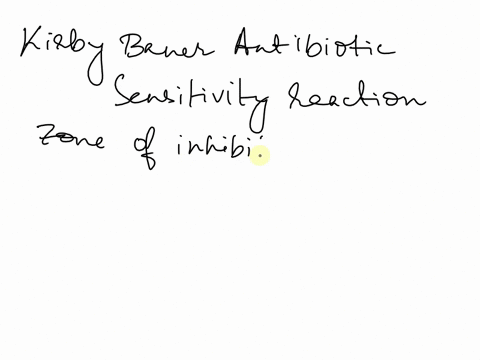 Kirby Bauer Antibiotic
Sensitivity reaction
Zone of inhibi